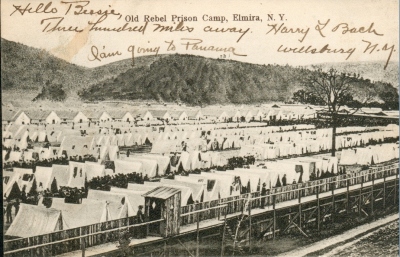 Old Rebel Prison Camp, Elmira, N. Y.
Hello Bessie,
Three hundred miles away
I'm going to Panama
Harry L Bach
Wellsburg N.Y.